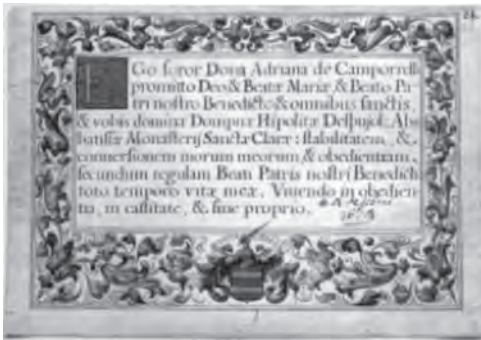 EGo soror Dona Adriana de Camporrells
promitto Deo & Beatæ Mariæ & Beato Pa-
tri nostro Benedicto & omnibus sanctis,
& vobis dominæ Dompnæ Hipolitæ Delpujol: Ab-
batissæ Monasterij Sanctæ Claræ: stabilitatem, &,
conuersionem morum meorum & obedientiam,
secundum regulam Beati Patris nostri Benedicti
toto tempore vitæ meæ, Viuendo in obedien-
tia, in castitate, & sine proprio.